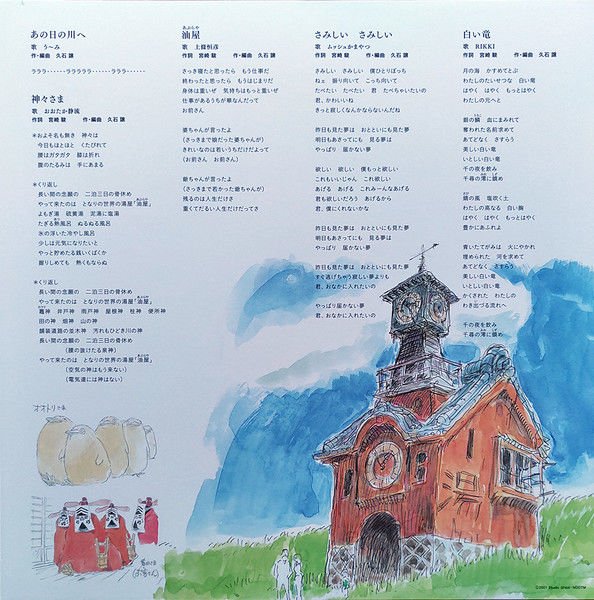 あの日の川へ
歌　う～み
作詞　宮崎 駿　　作・編曲　久石 譲
ラララ‥‥‥ララララララ‥‥‥ラララ‥‥‥
神々さま
歌　おおたか静流
作詞　宮崎 駿　　作・編曲　久石 譲
＊およそ名も無き　神々は
今日もほとほと　くたびれて
腰はガタガタ　膝は折れ
腹のたるみは　手にあまる
＊くり返し
長い間の念願の　二泊三日の骨休め
やって来たのは　となりの世界の湯屋「油屋」
よもぎ湯　硫黄湯　泥湯に塩湯
たぎる熱風呂　ぬるぬる風呂
氷の浮いた冷やし風呂
少しは元気になりたいと
やっと貯めたる銭いくばくか
握りしめても　熱くもならぬ
＊くり返し
長い間の念願の　二泊三日の骨休め
やって来たのは　となりの世界の湯屋「油屋」
竈神　井戸神　雨戸神　屋根神　枝神　便所神
田の神　畑神　山の神
舗装道路の並木神　汚れもひどき川の神
長い間の念願の　二泊三日の骨休め
（腰の抜けたる泉神）
やって来たのは　となりの世界の湯屋「油屋」
（空気の神はもう来ない）
（電気道には神はない）
油屋
あぶらや
歌　上條恒彦
作詞　宮崎 駿　　作・編曲　久石 譲
さっき寝たと思ったら　もう仕事だ
終わったと思ったら　もうはじまりだ
身体は重いぜ　気持ちはもっと重いぜ
仕事があるうちが華なんだって
お前さん
婆ちゃんが言ったよ
（さっきまで娘だった婆ちゃんが）
きれいなのは若いうちだけだよって
（お前さん　お前さん）
爺ちゃんが言ったよ
（さっきまで若かった爺ちゃんが）
残るのは人生だけさ
重くてだるい人生だけだってさ
さみしい　さみしい
歌　ムッシュかまやつ
作詞　宮崎 駿　　作・編曲　久石 譲
さみしい　さみしい　僕ひとりぼっち
ねぇ　振り向いて　こっち向いて
たべたい　たべたい　君　たべちゃいたいの
君、かわいいね
きっと寂しくなんかならないんだね
昨日も見た夢は　おとといにも見た夢
明日もあさってにも　見る夢は
やっぱり　届かない夢
欲しい　欲しい　僕もっと欲しい
これもいいじゃん　これ欲しい
あげる　あげる　これみーんなあげる
君も欲しいだろう　あげるから
君、僕にくれないかな
昨日も見た夢は　おとといにも見た夢
明日もあさってにも　見る夢は
やっぱり　届かない夢
昨日も見た夢は　おとといにも見た夢
すぐ逃げちゃう寂しい夢よりも
君、おなかに入れたいの
やっぱり届かない夢
君、おなかに入れたいの
白い竜
歌　RIKKI
作詞　宮崎 駿　　作・編曲　久石 譲
月の海　かすめてとぶ
わたしのたいせつな　白い竜
はやく　はやく　もっとはやく
わたしの元へと
銀の鱗　血にまみれて
奪われた名前求めて
あてどなく　さすらう
美しい白い竜
いとしい白い竜
千の夜を飲み
千尋の澪に鎮め
鯖の風　塩吹く土
わたしの高なる　白い胸
はやく　はやく　もっとはやく
豊かにあふれよ
青いたてがみは　火にやかれ
埋められた　河を求めて
あてどなく　さすらう
美しい白い竜
いとしい白い竜
かくされた　わたしの
わき出づる流れへ
千の夜を飲み
千尋の澪に鎮め
オオトリさま
©2001 Studio Ghibli・NDDTM